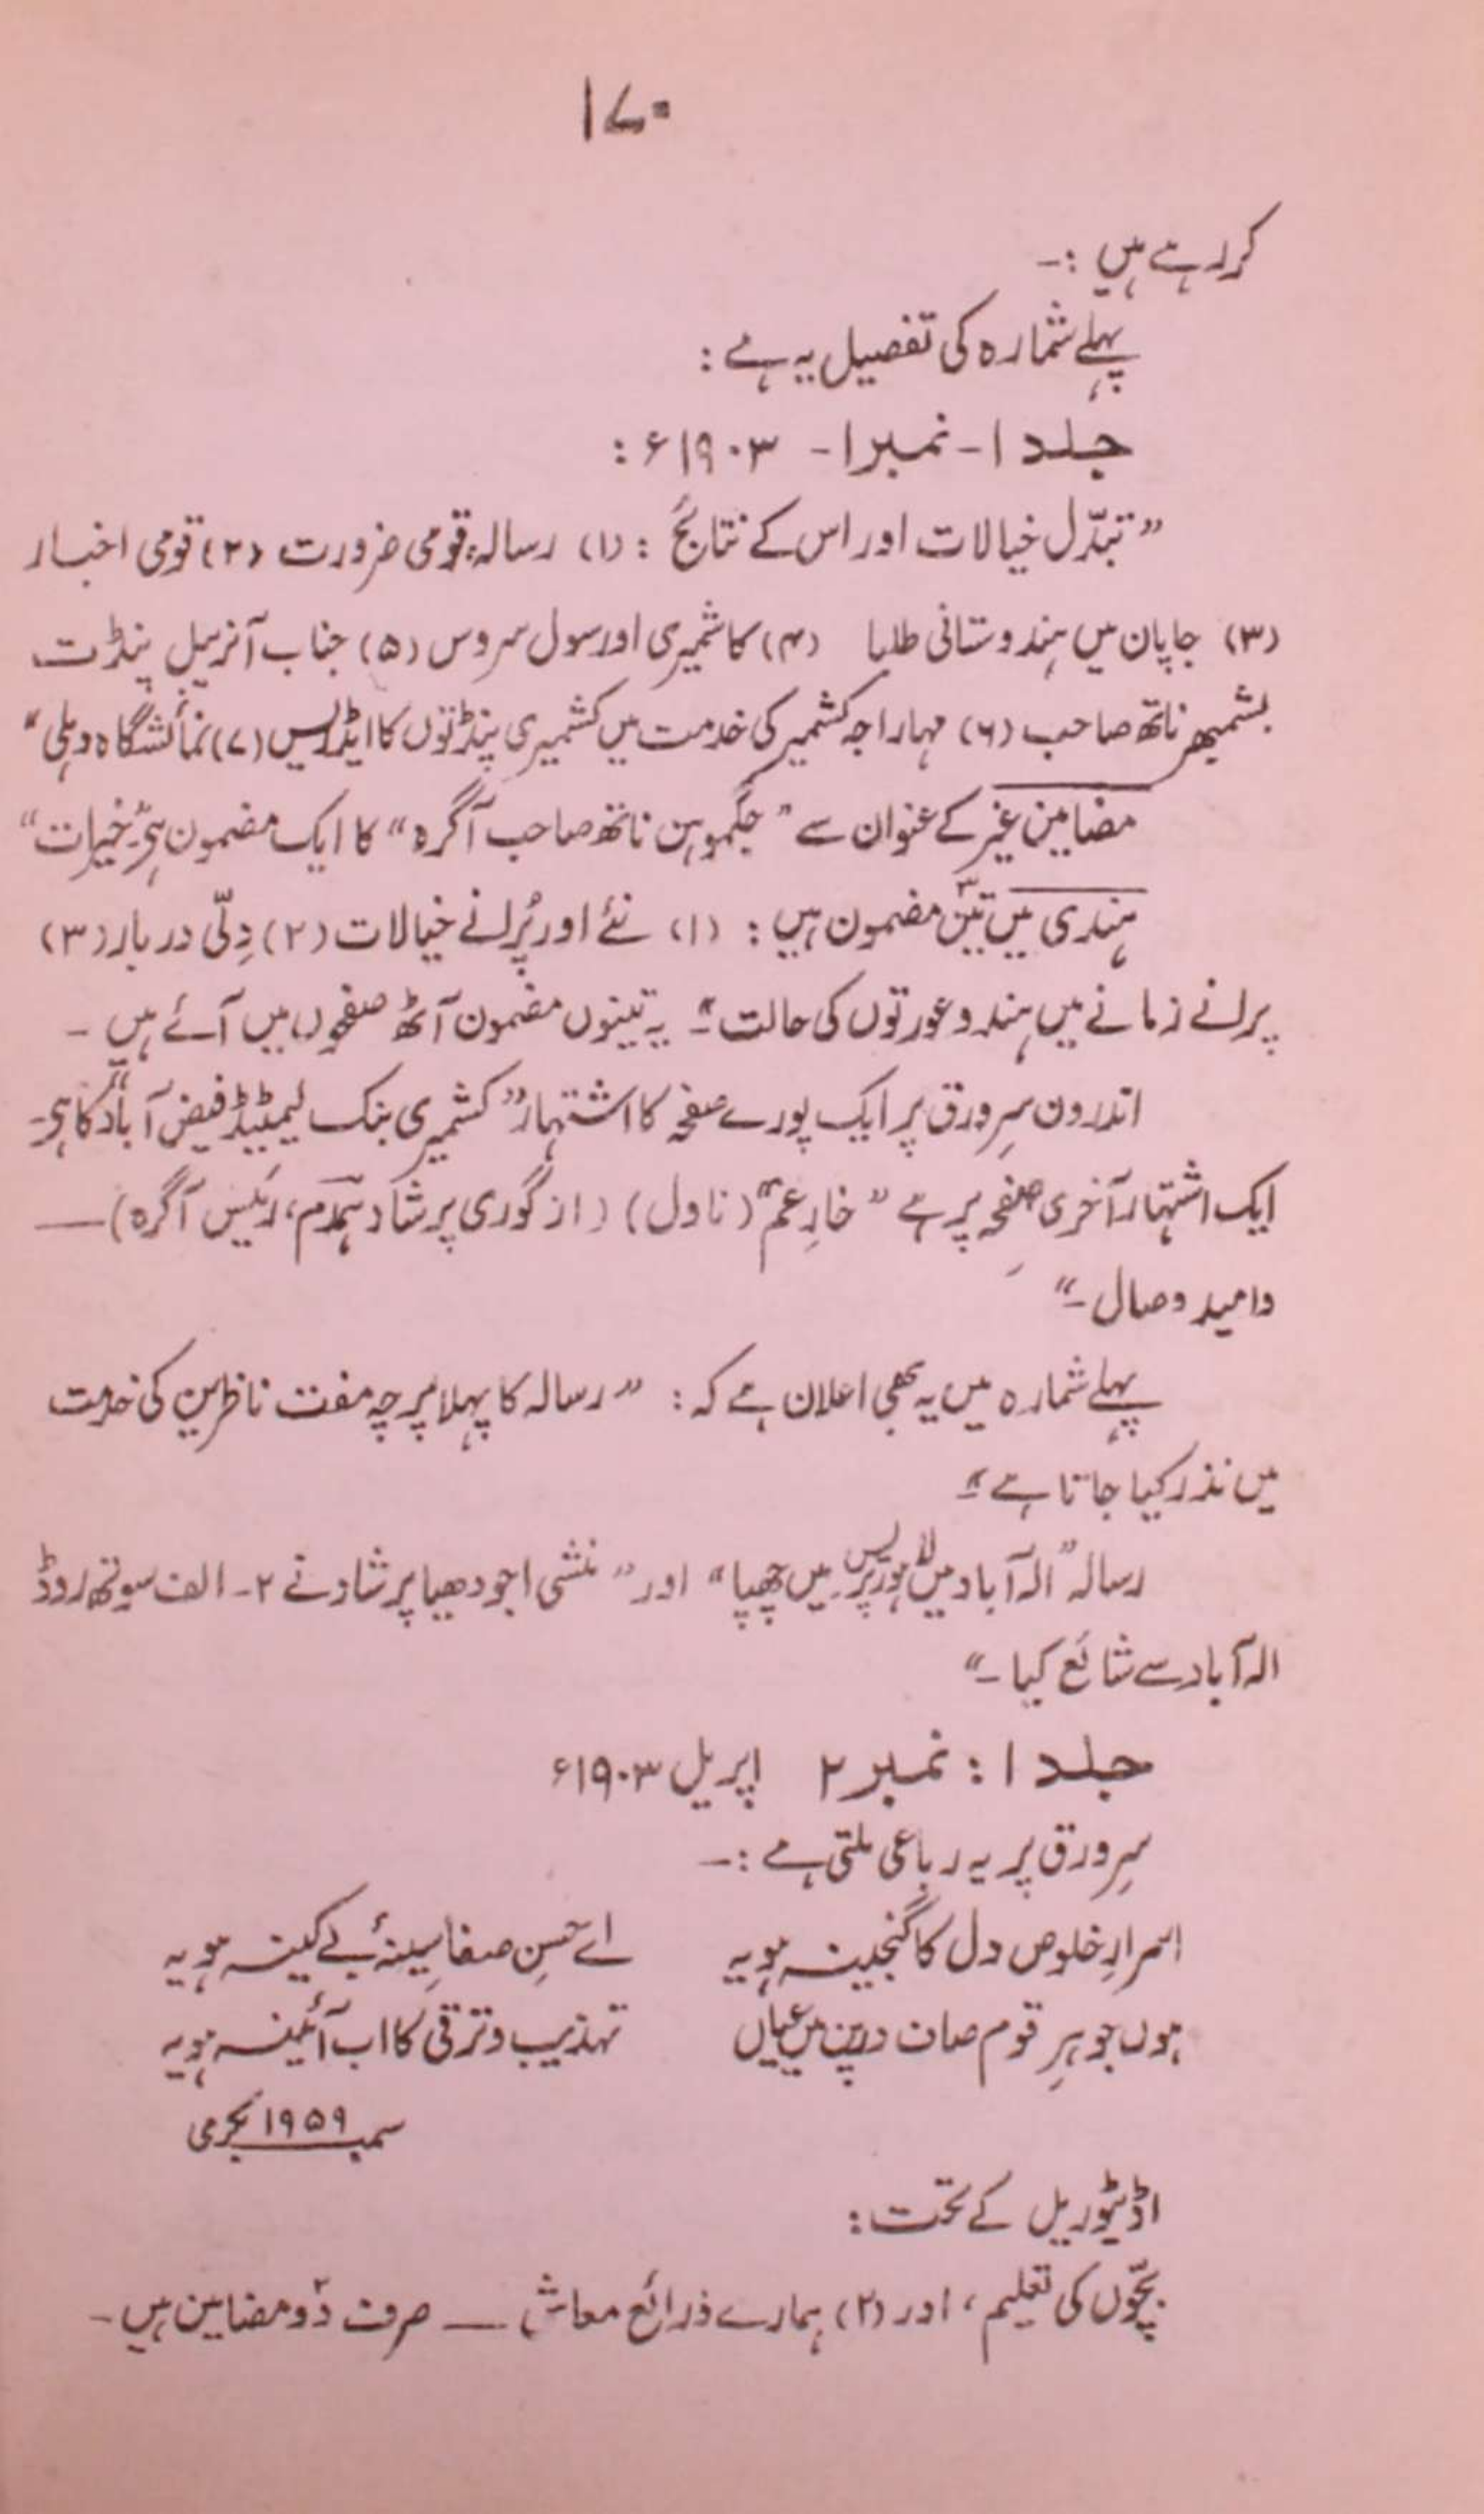 ۱۷۰
کر رہے ہیں :-
پہلے شمارہ کی تفصیل یہ ہے :
جلد ۱ - نمبر ۱ - ۱۹۰۳ء :
”تبدّل خیالات اور اس کے نتائج : (۱) رسالہ قومی ضرورت (۲) قومی اخبار
(۳) جاپان میں ہندوستانی طلبا (۴) کاشمیری اور سول سروس (۵) جناب آنریبل پنڈت
بشمبھر ناتھ صاحب (۶) مہاراجہ کشمیر کی خدمت میں کشمیری پنڈتوں کا ایڈریس (۷) نمائشگاہ دہلی“
مضامین غیر کے عنوان سے ”جگموہن ناتھ صاحب آگرہ“ کا ایک مضمون ہے ”خیرات“
ہندی میں تین۳ مضمون ہیں : (۱) نئے اور پُرانے خیالات (۲) دِلّی دربار (۳)
پرانے زمانے میں ہندو عورتوں کی حالت“۔ یہ تینوں مضمون آٹھ صفحوں میں آئے ہیں ۔
اندرون سرورق پر ایک پورے صفحہ کا اشتہار ”کشمیری بنک لیمیٹیڈ فیض آباد“ کا ہے۔
ایک اشتہار آخری صفحہ پر ہے ”خارِ غم“ (ناول) (از گوری پرشاد ہمدم، رئیس آگرہ) —
وامید وصال ۔“
پہلے شمارہ میں یہ بھی اعلان ہے کہ : ”رسالہ کا پہلا پرچہ مفت ناظرین کی خدمت
میں نذر کیا جاتا ہے“۔
رسالہ ”الہ آباد میں لاہور پریس میں چھپا“ اور ”منشی اجودھیا پرشاد نے ۲ ۔ الف سوتھ روڈ
الہ آباد سے شائع کیا ۔“
جلد ۱ : نمبر ۲ اپریل ۱۹۰۳ء
سرِورق پر یہ رباعی ملتی ہے :-
اسرارِ خلوص دل کا گنجینہ ہو یہ اے حسنِ صفا سینۂ بے کینہ ہو یہ
ہوں جوہرِ قوم صاف درپن میں عیاں تہذیب و ترقی کا اب آئینہ ہو یہ
سمبت ۱۹۵۹ بکرمی
اڈیٹوریل کے تحت :
بچّوں کی تعلیم، اور (۲) ہمارے ذرائع معاش — صرف دو۲ مضامین ہیں ۔